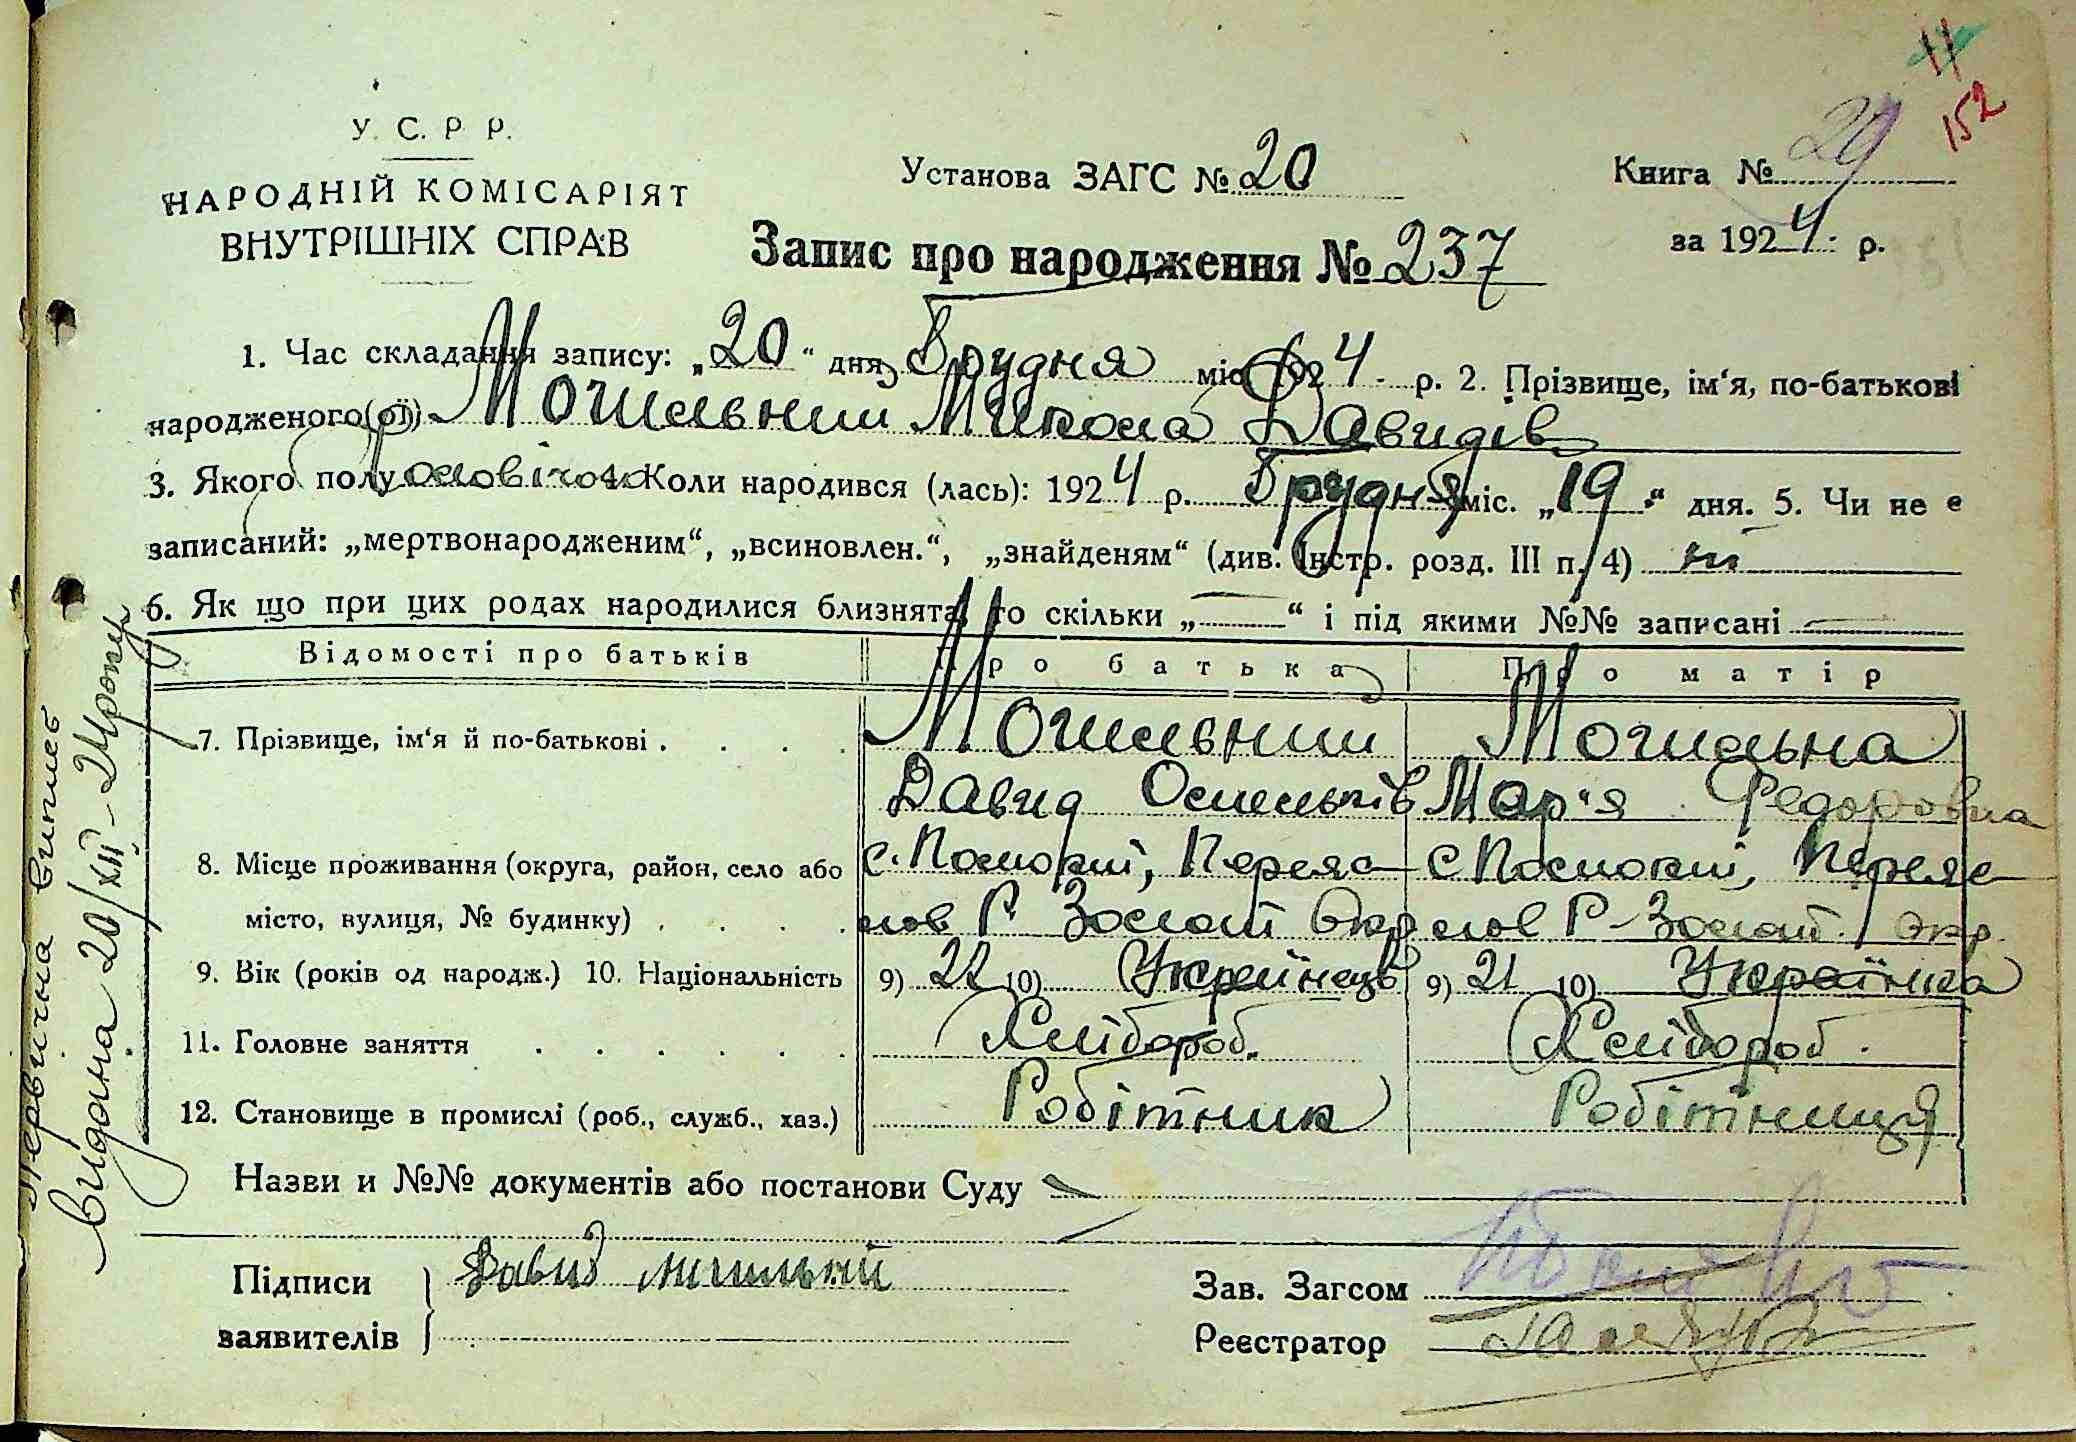 11
152
У. С. Р. Р.
НАРОДНІЙ КОМІСАРІЯТ
ВНУТРІШНІХ СПРАВ
Установа ЗАГС № 20
Книга № 29
за 1924 р.
Запис про народження № 237
1. Час складання запису: „20“ дня Грудня міс. 1924 р. 2. Прізвище, ім‘я, по-батькові
народженого(ої) Могильний Микола Давидів
3. Якого полу чоловічого Коли народився (лась): 1924 р. Грудня міс. „19“ дня. 5. Чи не є
записаний: „мертвонародженим“, „всиновлен.“, „знайденям“ (див. Інстр. розд. III п. 4) ні
6. Як що при цих родах народилися близнята, то скільки „—“ і під якими №№ записані —
Відомості про батьків Про батька Про матір
7. Прізвище, ім‘я й по-батькові . . . . Могильний Могильна
Давид Осипів Мар'я Федоровна
8. Місце проживання (округа, район, село або с. Помоклі, Переяс- с Помоклі, Переяс-
місто, вулиця, № будинку) . . . . лов Р. Золот Окр лов Р- Золот. Окр.
9. Вік (років од народж.) 10. Національність 9) 22 10) Українець 9) 21 10) Українка
11. Головне заняття . . . . . . Хлібороб. Хлібороб.
12. Становище в промислі (роб., служб., хаз.) Робітник Робітниця
Назви и №№ документів або постанови Суду —
Підписи
заявителів
Давид Могильний
Зав. Загсом
Реєстратор
Первична випись
видана 20/XII-24 року